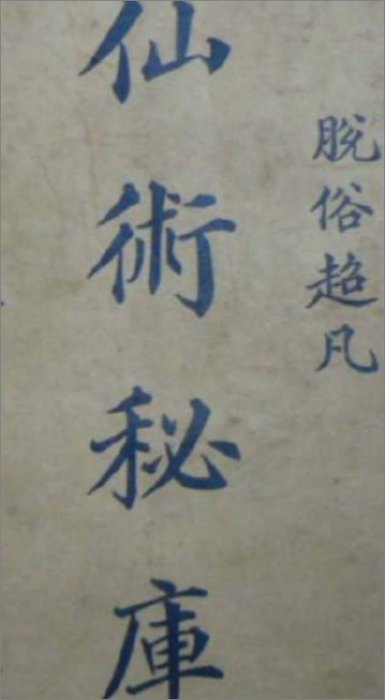 脫俗超凡
仙術秘庫